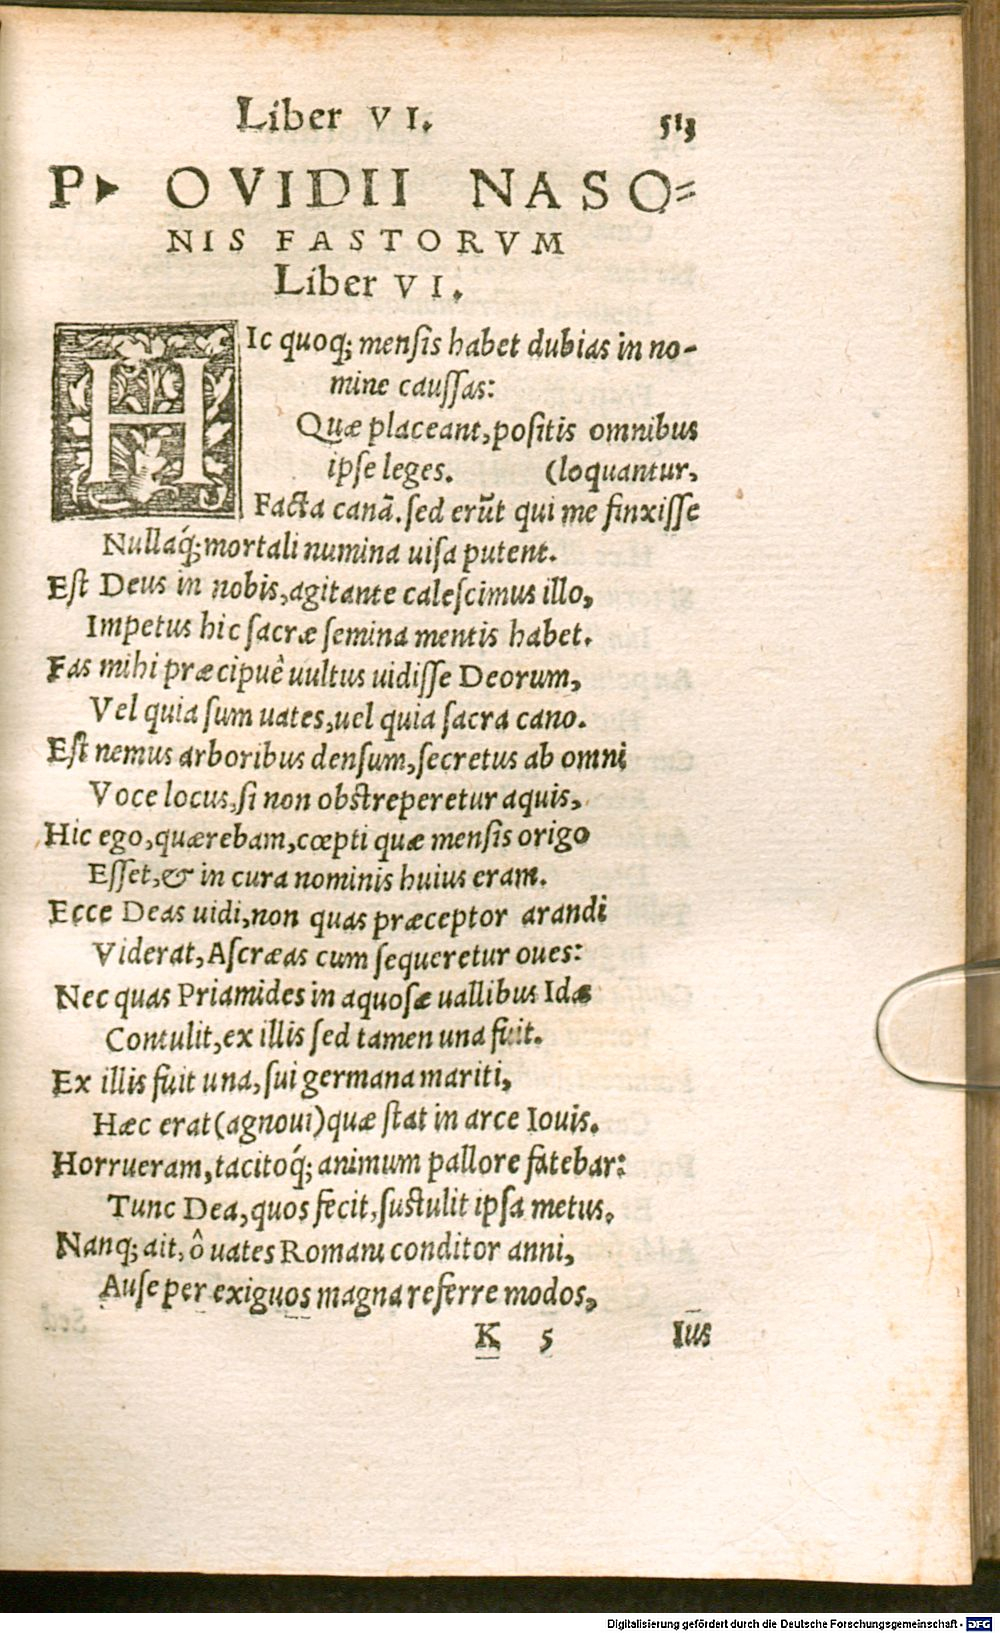 Liber VI. 513
P. OVIDII NASO=
NIS FASTORVM
Liber VI.
HIc quoq; menſis habet dubias in no-
mine cauſſas:
Quæ placeant, poſitis omnibus
ipſe leges. (loquantur,
Facta canā. ſed erūt qui me finxiſſe
Nullaq́; mortali numina uiſa putent.
Eſt Deus in nobis, agitante caleſcimus illo,
Impetus hic ſacræ ſemina mentis habet.
Fas mihi præcipuê uultus uidiſſe Deorum,
Vel quia ſum uates, uel quia ſacra cano.
Eſt nemus arboribus denſum, ſecretus ab omni
Voce locus, ſi non obſtreperetur aquis,
Hic ego, quærebam, cœpti quæ menſis origo
Eſſet, & in cura nominis huius eram.
Ecce Deas uidi, non quas præceptor arandi
Viderat, Aſcræas cum ſequeretur oues:
Nec quas Priamides in aquoſæ uallibus Idæ
Contulit, ex illis ſed tamen una fuit.
Ex illis fuit una, ſui germana mariti,
Hæc erat (agnoui) quæ ſtat in arce Iouis.
Horrueram, tacitoq́; animum pallore fatebar:
Tunc Dea, quos fecit, ſuſtulit ipſa metus.
Nanq; ait, ô uates Romani conditor anni,
Auſe per exiguos magna referre modos,
K 5 Ius
Digitalisierung gefördert durch die Deutsche Forschungsgemeinschaft - DFG